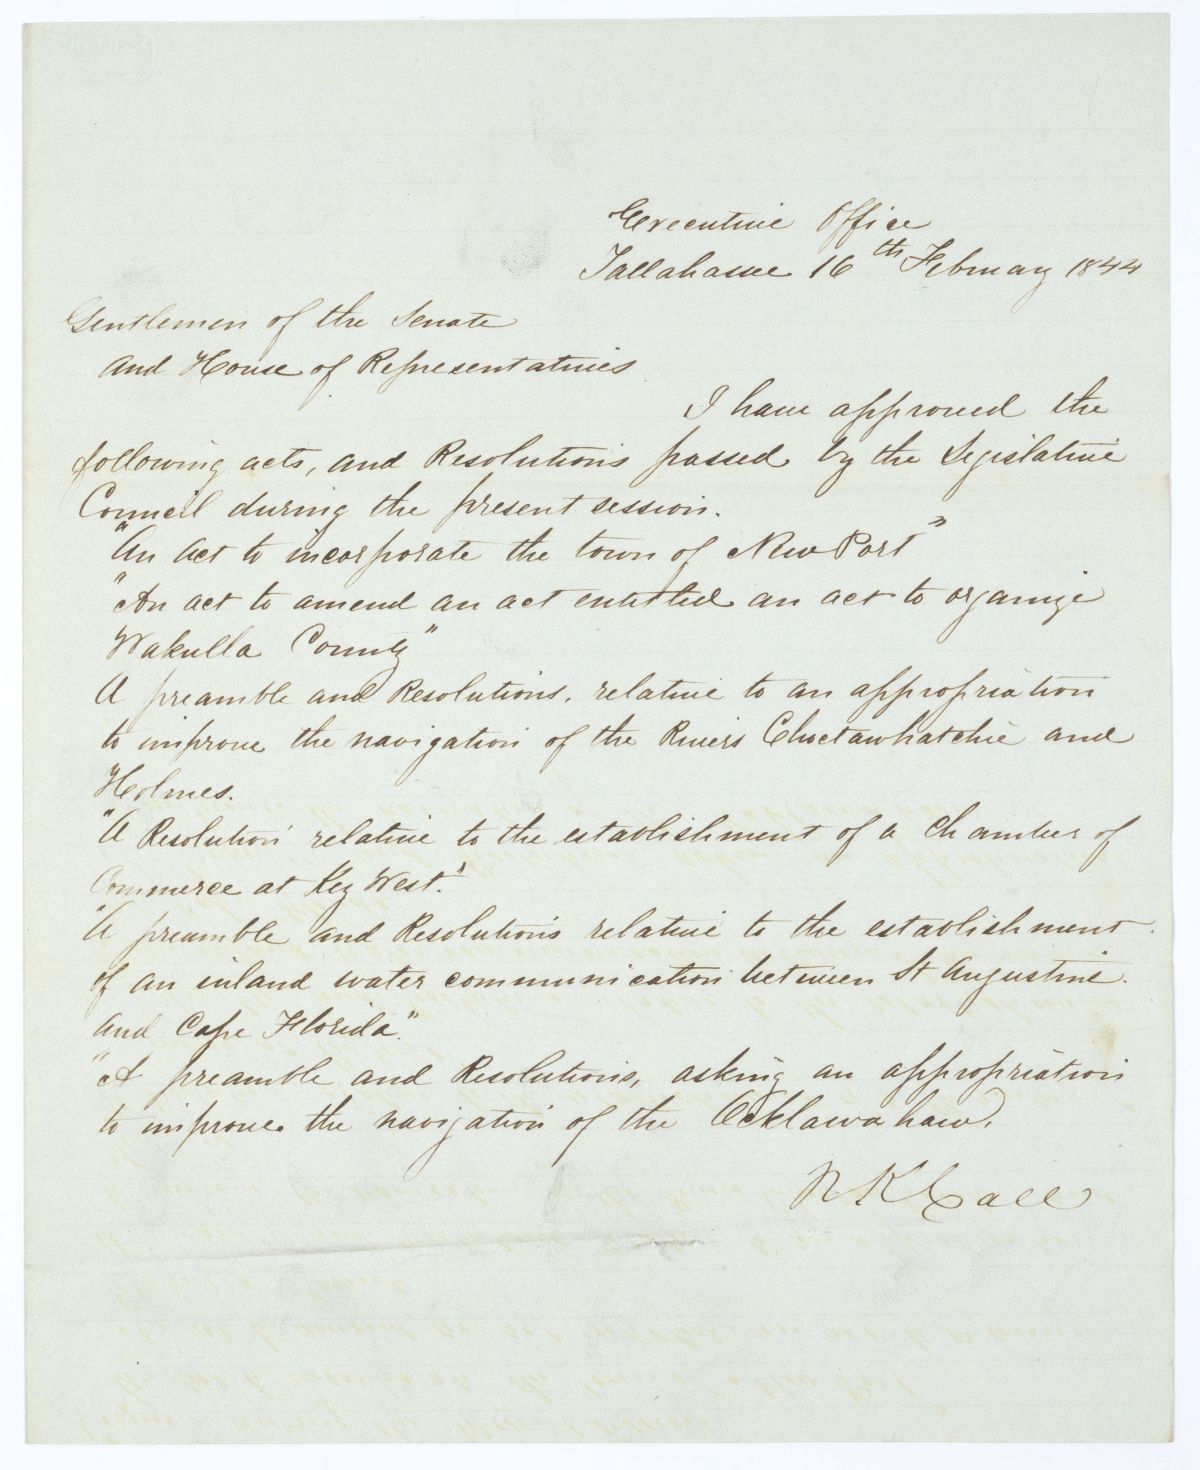 Executive Office
Tallahassee 16th February 1844
Gentlemen of the Senate
and House of Representatives
I have approved the
following acts, and Resolutions passed by the Legislative
Council during the present session.
"An Act to incorporate the town of New Port"
"An act to amend an act entitled an act to organize
Wakulla County"
A preamble and Resolutions, relative to an appropriation
to improve the navigation of the Rivers Choctawhatchie and
Holmes.
"A Resolution relative to the establishment of a Chamber of
Commerce at Key West."
"A preamble and Resolutions relative to the establishment
of an inland water communication between St Augustine
and Cape Florida".
"A preamble and Resolutions, asking an appropriation
to improve the navigation of the Ocklawahaw.
R K Call